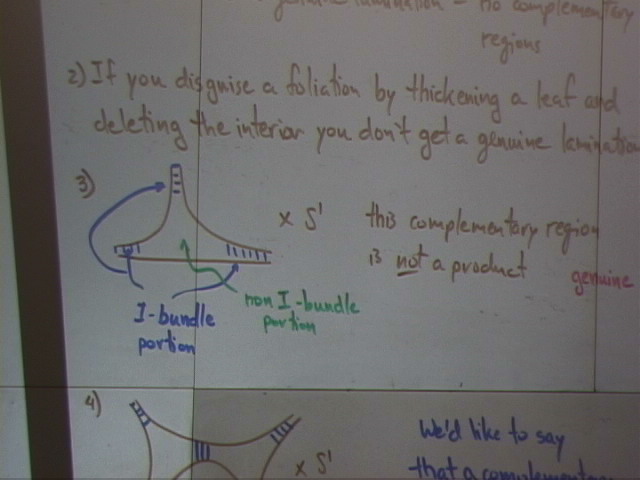 genuine lamination - no complementary
regions
2) If you disguise a foliation by thickening a leaf and
deleting the interior you don't get a genuine lamination
3)
× S¹
this complementary region
is not a product
genuine
I-bundle
portion
non I-bundle
portion
4)
× S¹
We'd like to say
that a complementary